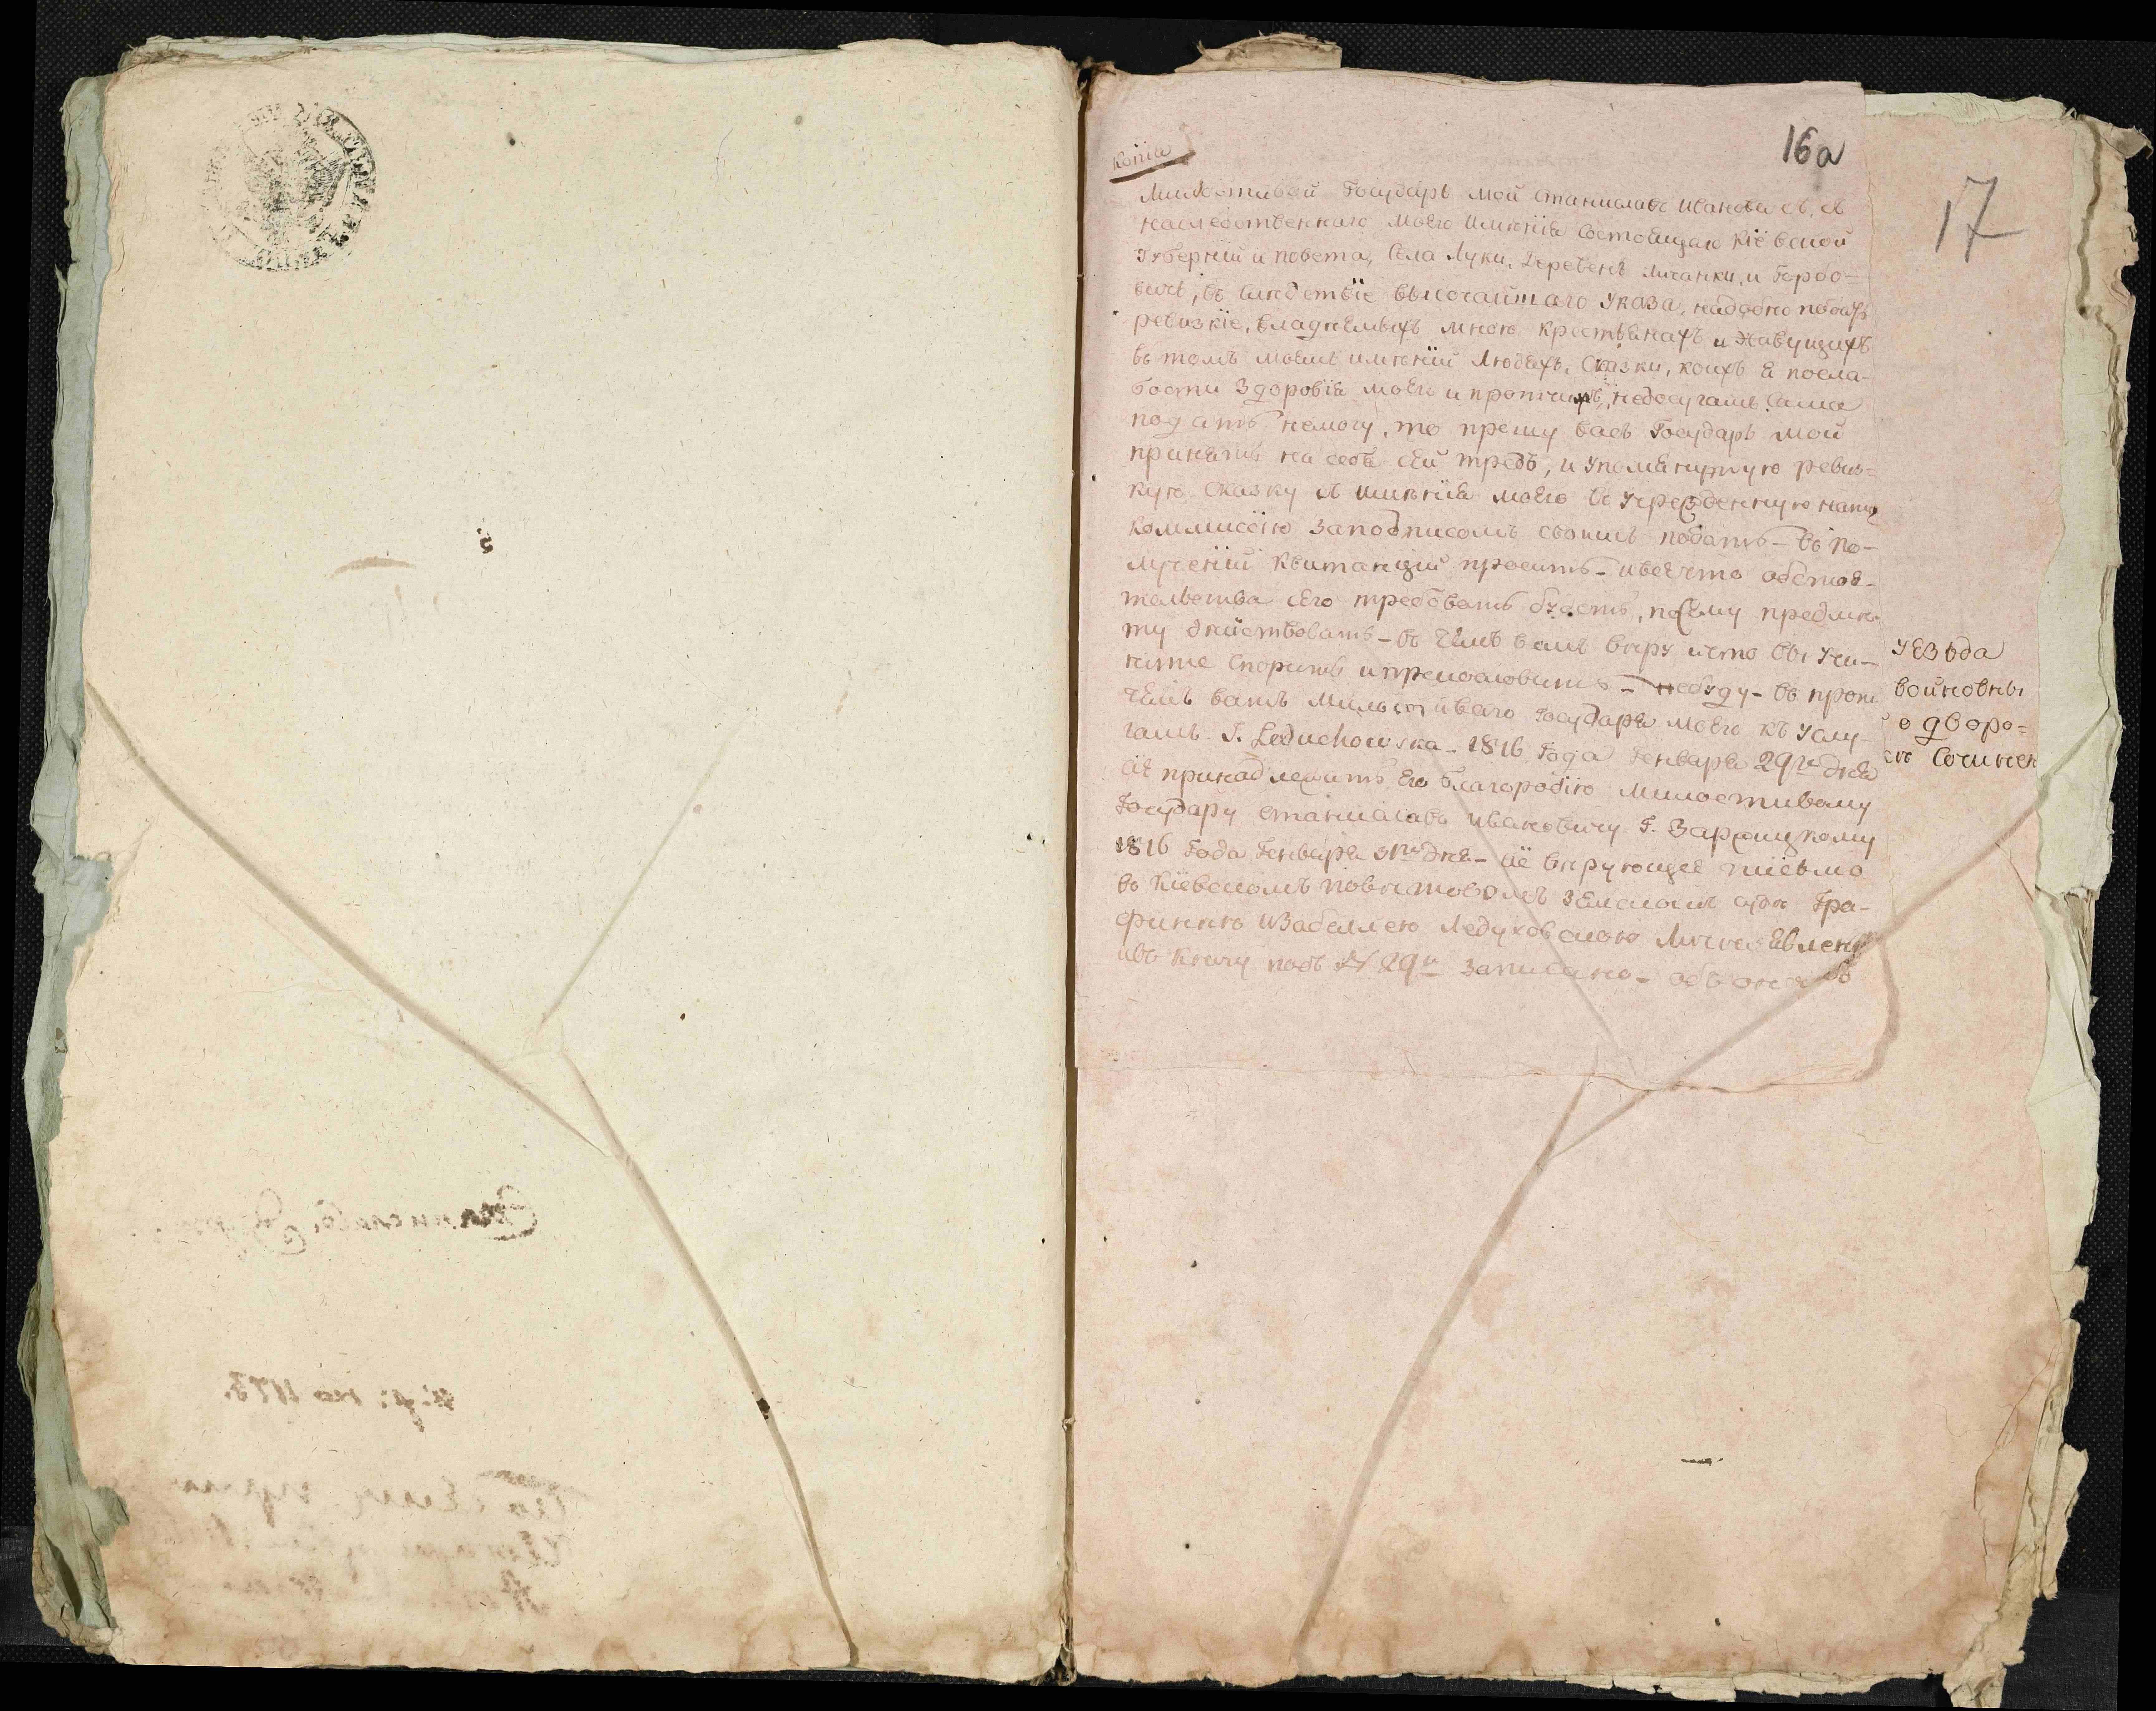 16a
17
Копія
Милостивый Государь мой Станиславъ Ивановичъ, съ
наследственнаго моего имѣнія состоящаго Кіевской
Губерніи и повета, Села Луки, Деревень Личанки, и Горбо-
вичъ, въ следствіе высочайшаго Указа, надобно подать
ревизкіе, владѣемыхъ мною крестьянахъ и Живущихъ
въ томъ моемъ имѣніи Людехъ, Сказки, коихъ я посла-
бости Здоровія моего и протчимъ, недосугамъ Сама
подать немогу, то прошу васъ Государь мой
принять на себя сей трудъ, и упомянутую ревиз-
кую Сказку съ имѣнія моего въ учрежденную на то
Коммисію заподписомъ своимъ подать - въ по-
лученіи Квитанціи просить - и все что обстоя-
тельства сего требовать будетъ, по сему предме-
ту дѣйствовать - въ чемъ вамъ верю и что вы учи-
ните Спорить и прекословить - небуду - въ проч
чемъ вашъ Милостиваго Государя моего къ услу-
гамъ. I. Leduchowska - 1816 Года Генваря 29го дня
сіе принадлежитъ Его Благородію милостивому
Государю Станиславъ Ивановичу Г. Заржицкому
1816 Года Генваря 31го дня - сіе верующее писмо
въ Кіевскомъ поветовомъ земскомъ суде Гра-
финею Изабеллею Ледуховскою Лично явлено
и въ Книгу подъ № 29м записано -
уезда
войновны
о дворо-
Сочинен